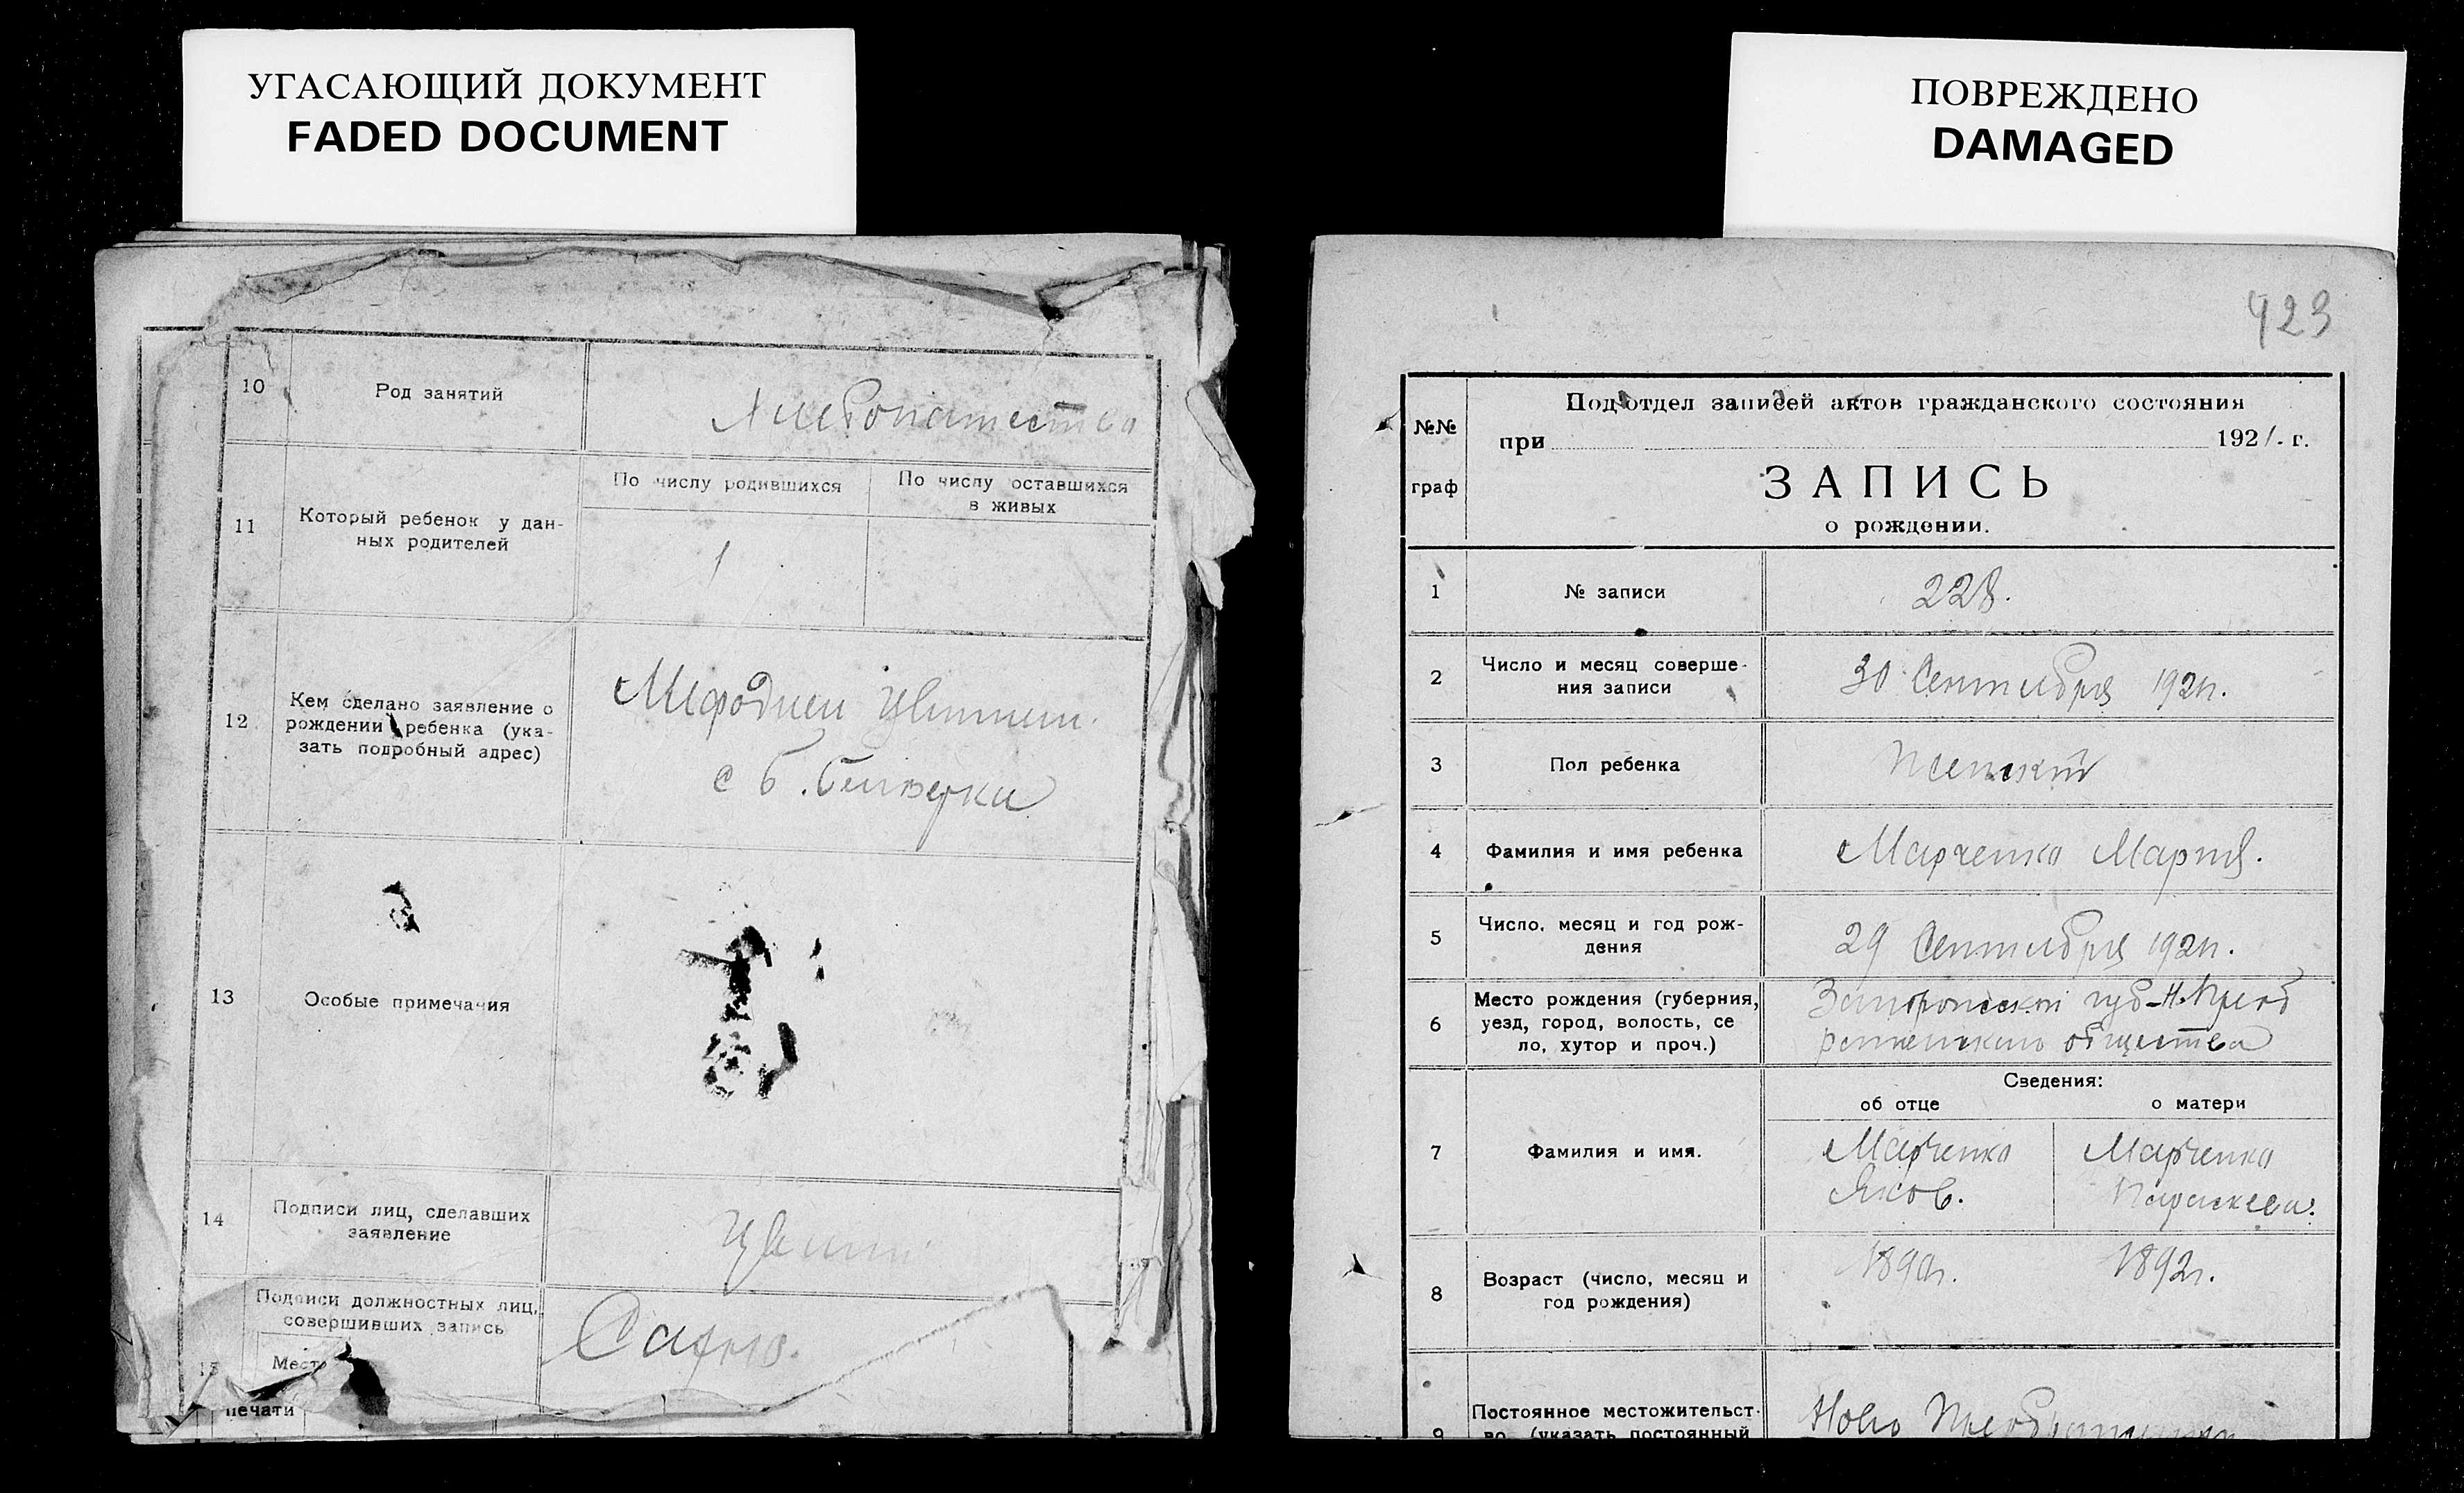 УГАСАЮЩИЙ ДОКУМЕНТ
FADED DOCUMENT
10
Род занятий
Хлебопашество
11
Который ребенок у дан-
ных родителей
По числу родившихся
По числу оставшихся
в живых
1
12
Кем сделано заявление о
рождении ребенка (ука-
зать подробный адрес)
Мефодием
с Б.
13
Особые примечания
14
Подписи лиц, сделавших
заявление
15
Подписи должностных лиц,
совершивших запись
Место
печати
ПОВРЕЖДЕНО
DAMAGED
423
№№
граф
Подотдел записей актов гражданского состояния
при 1921 г.
ЗАПИСЬ
о рождении.
1
№ записи
228.
2
Число и месяц соверше-
ния записи
30 Сентября 1921г.
3
Пол ребенка
Женский
4
Фамилия и имя ребенка
Марченко Мария.
5
Число, месяц и год рож-
дения
29 Сентября 1921г.
6
Место рождения (губерния,
уезд, город, волость, се
ло, хутор и проч.)
Запорожской губ-Н.Преоб
раженского общества
Сведения:
об отце
о матери
7
Фамилия и имя.
Марченко
Яков.
Марченко
Параскева.
8
Возраст (число, месяц и
год рождения)
1892г.
9
Постоянное местожительст-
во (указать постоянный
Ново